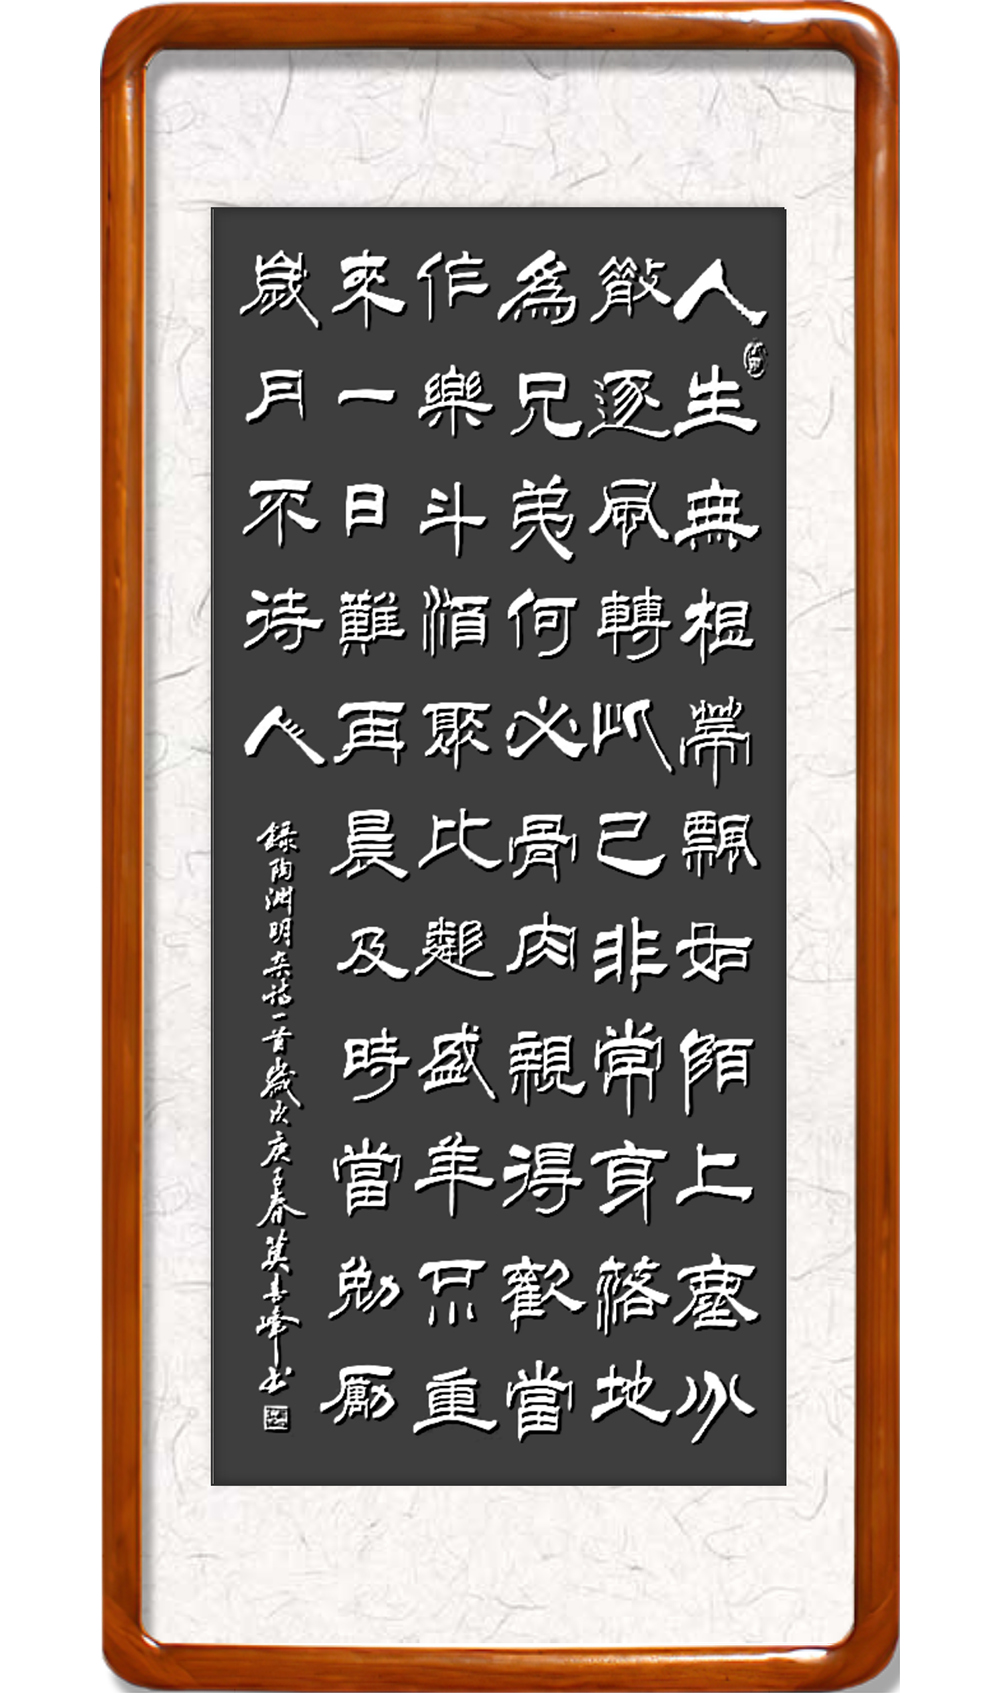 人生無根蒂飄如陌上塵分
散逐風轉此已非常身落地
爲兄弟何必骨肉親得歡當
作樂斗酒聚比鄰盛年不重
來一日難再晨及時當勉厲
歲月不待人
錄陶淵明杂詩一首歲次庚子春莫喜峰书